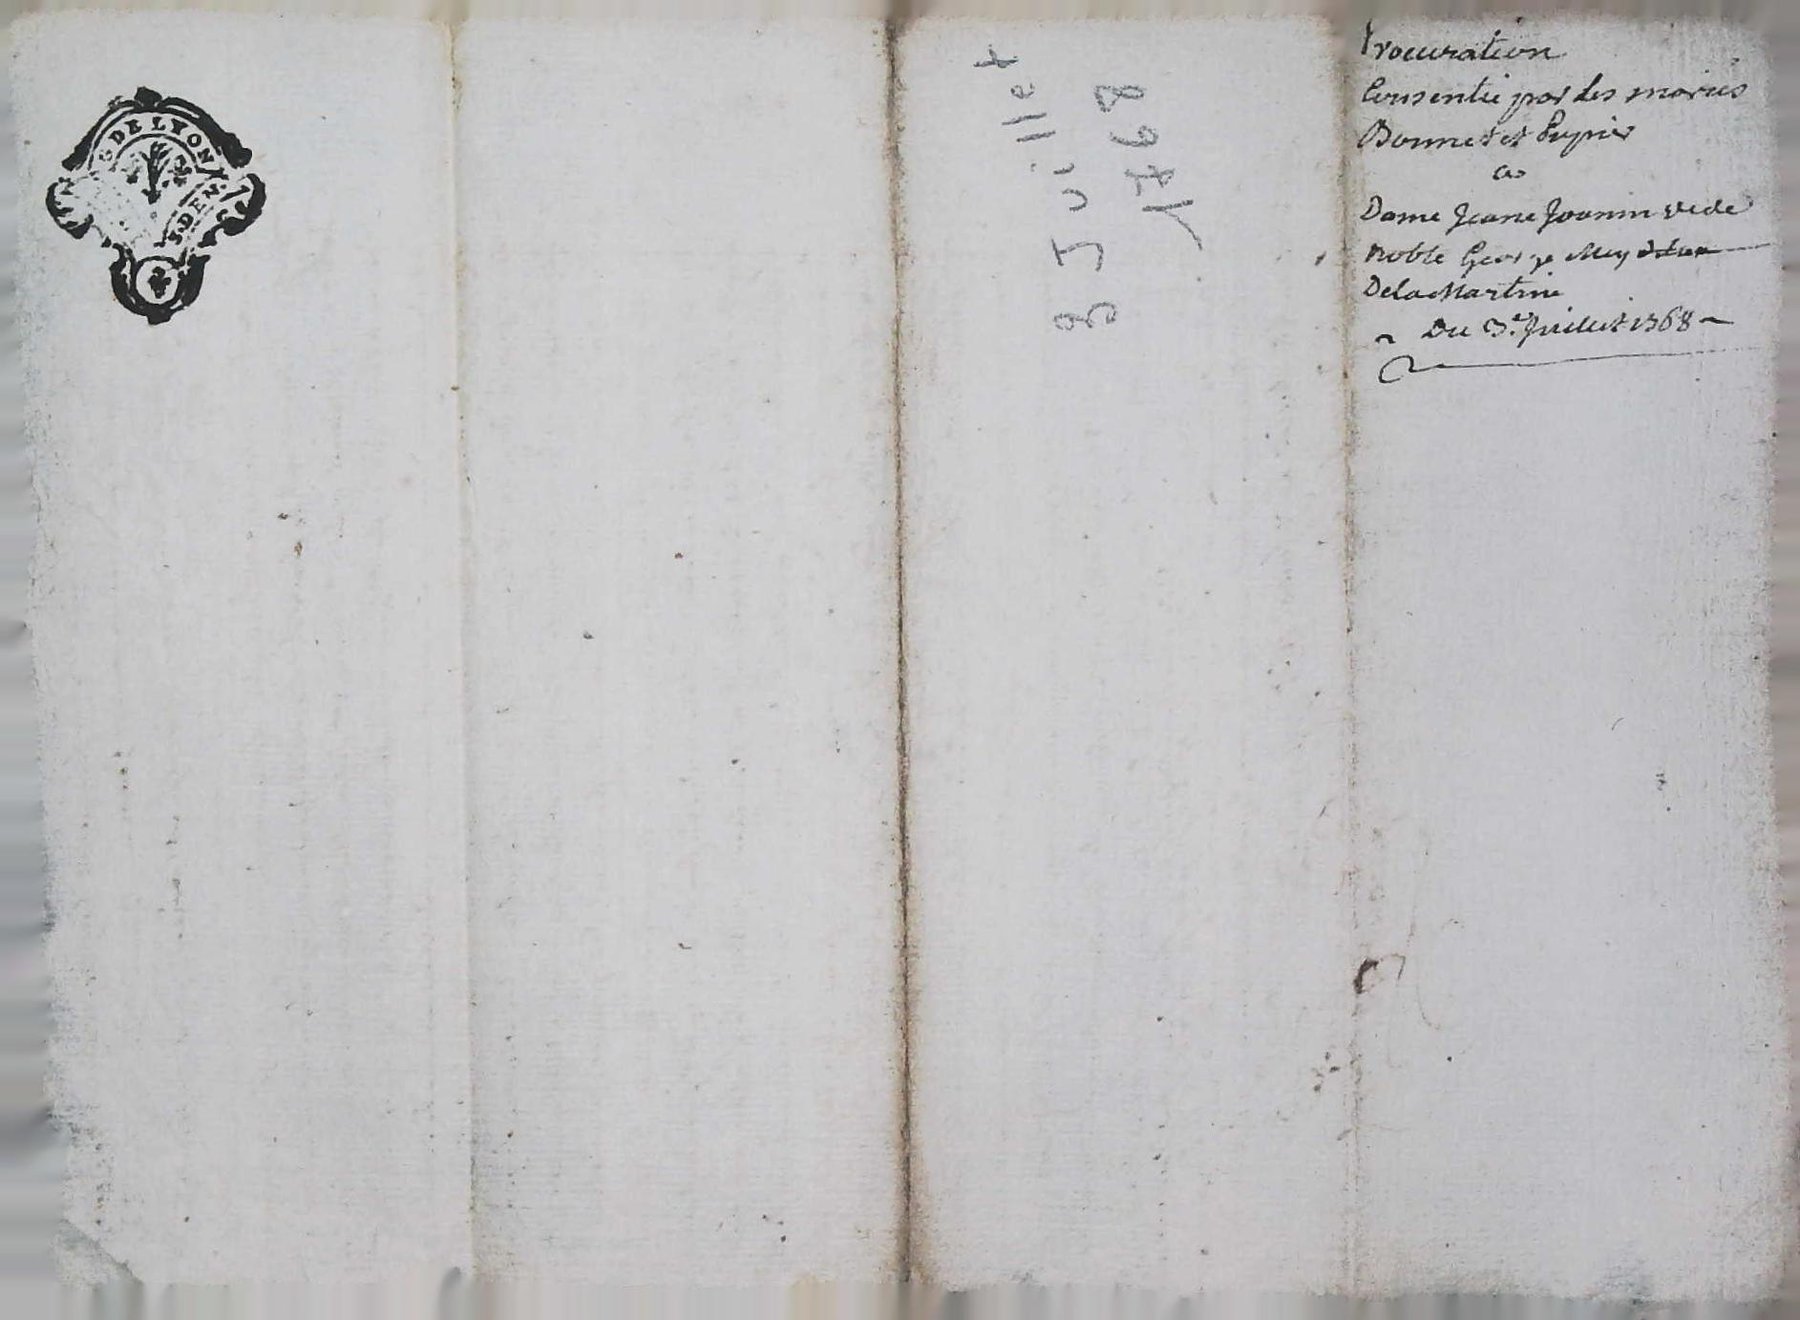 DE LYON
S. DEN.
3 Juillet
1768
Procuration
Consentie par les mariés
Bonnet et Pupier
a
Dame Jeane Joanin veuve
noble George Mey
DelaMartine
Du 3e Juillet 1768